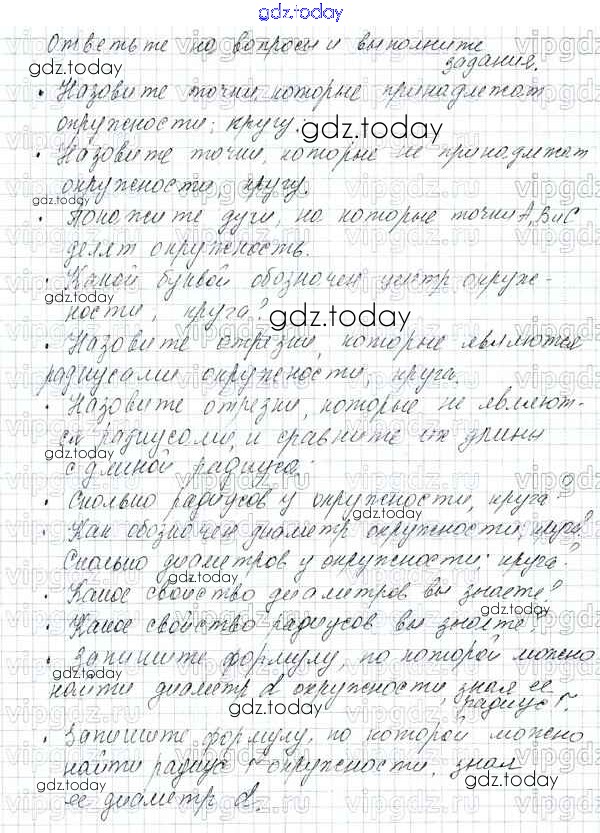 gdz.today
Ответьте на вопросы и выполните
задания.
• Назовите точки, которые принадлежат
окружности; кругу.
• Назовите точки, которые не принадлежат
окружности, кругу.
• Покажите дуги, на которые точки А, В и С
делят окружность.
• Какой буквой обозначен центр окруж-
ности; круга?
• Назовите отрезки, которые являются
радиусами окружности; круга.
• Назовите отрезки, которые не являют-
ся радиусами, и сравните их длины
с длиной радиуса;
• Сколько радиусов у окружности, круга?
• Как обозначен диаметр окружности; круга?
Сколько диаметров у окружности; круга?
• Какое свойство диаметров вы знаете?
• Какое свойство радиусов вы знаете?
• Запишите формулу, по которой можно
найти диаметр d окружности, зная ее
радиус r.
• Запишите формулу, по которой можно
найти радиус r окружности, зная
ее диаметр d.